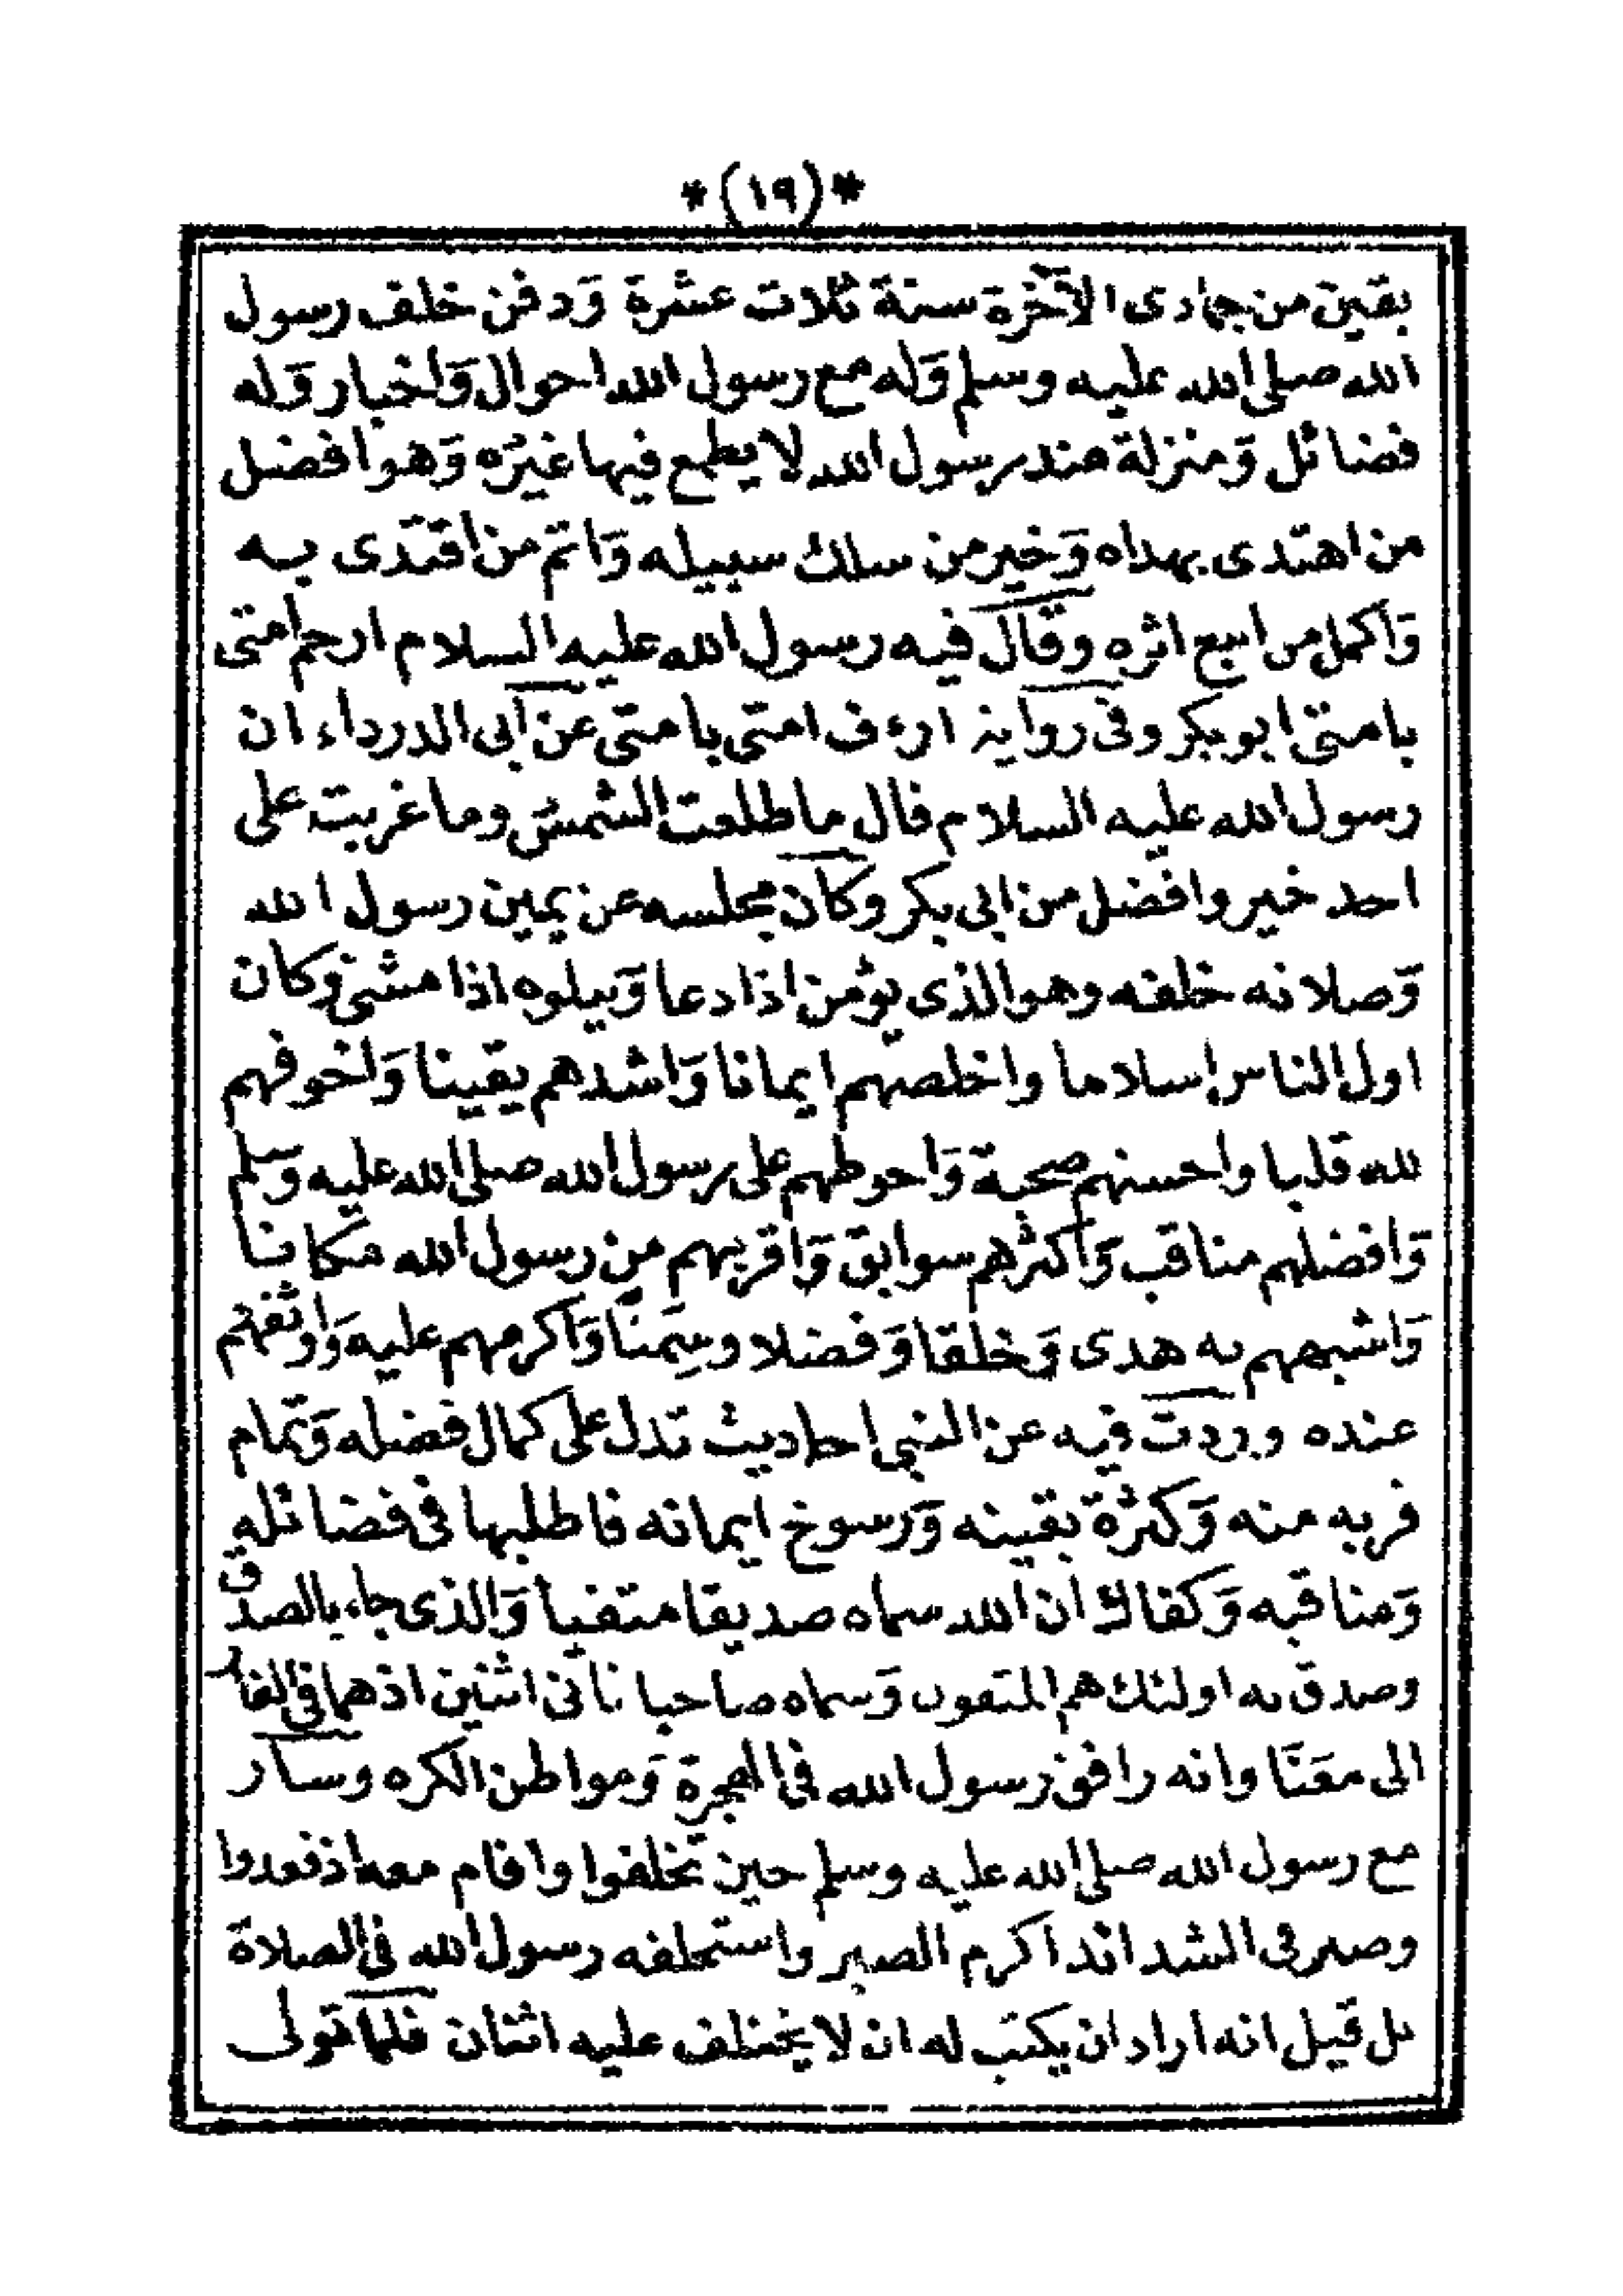 *(١٩)*
بقين من جمادى الآخرة سنة ثلاث عشرة وَدفن خلف رسول
الله صلى الله عليه وسلم وَله مع رسول الله احوال وَاخبار وَله
فضائل وَمنزلة عند رسول الله لا يطمع فيها غيره وَهو افضل
من اهتدى بهداه وَخير من سلك سبيله وَاتم من اقتدى به
وَاكمل من اتبع اثره وقال فيه رسول الله عليه السلام ارحم امتى
بامتى ابو بكر وفى رواية ارءف امتى بامتى عن ابى الدرداء ان
رسول الله عليه السلام قال ما طلعت الشمس وما غربت على
احد خير وافضل من ابى بكر وكان مجلسه عن يمين رسول الله
وَصلاته خلفه وهو الذى يؤمن اذا دعا وَيتلوه اذا مشى وكان
اول الناس إسلاما واخلصهم ايمانا وَاشدهم يقينا وَاخوفهم
لله قلبا واحسنهم صحبة وَاحوطهم على رسول الله صلى الله عليه وَسلم
وَافضلهم مناقب وَاكثرهم سوابق وَاقربهم من رسول الله مكانا
وَاشبههم به هدى وَخلقا وَفضلا وسِمتًا وَاكرمهم عليه وَاوثقهم
عنده ووردت فيه عن النبى احاديث تدل على كمال فضله وَتمام
قربه منه وَكثرة يقينه وَرسوخ ايمانه فاطلبها فى فضائله
وَمناقبه وَكفاك ان الله سماه صديقا متقيا وَالذى جاء بالصدق
وصدق به اولئك هم المتقون وَسماه صاحبا ثانى اثنين اذ هما فى الغار
الى معَنَا وانه رافق رسول الله فى الهجرة وَمواطن الكره وسار
مع رسول الله صلى الله عليه وسلم حين تخلفوا واقام معه اذ قعدوا
وصبر فى الشدائد اكرم الصبر واستخلفه رسول الله فى الصلاة
بل قيل انه اراد ان يكتب له ان لا يختلف عليه اثنان فلما تولى